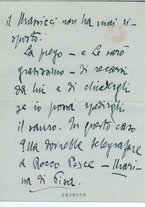 il Marricci non ha mai ri-
sposto.
La prego – e Le sarò
gratissimo – di recarsi
da lui e di chiedergli
se io posso spedirgli
il lauro. In questo caso
Ella dovrebbe telegrafare
a Bocca Pesce – Mari-
na di Pisa.